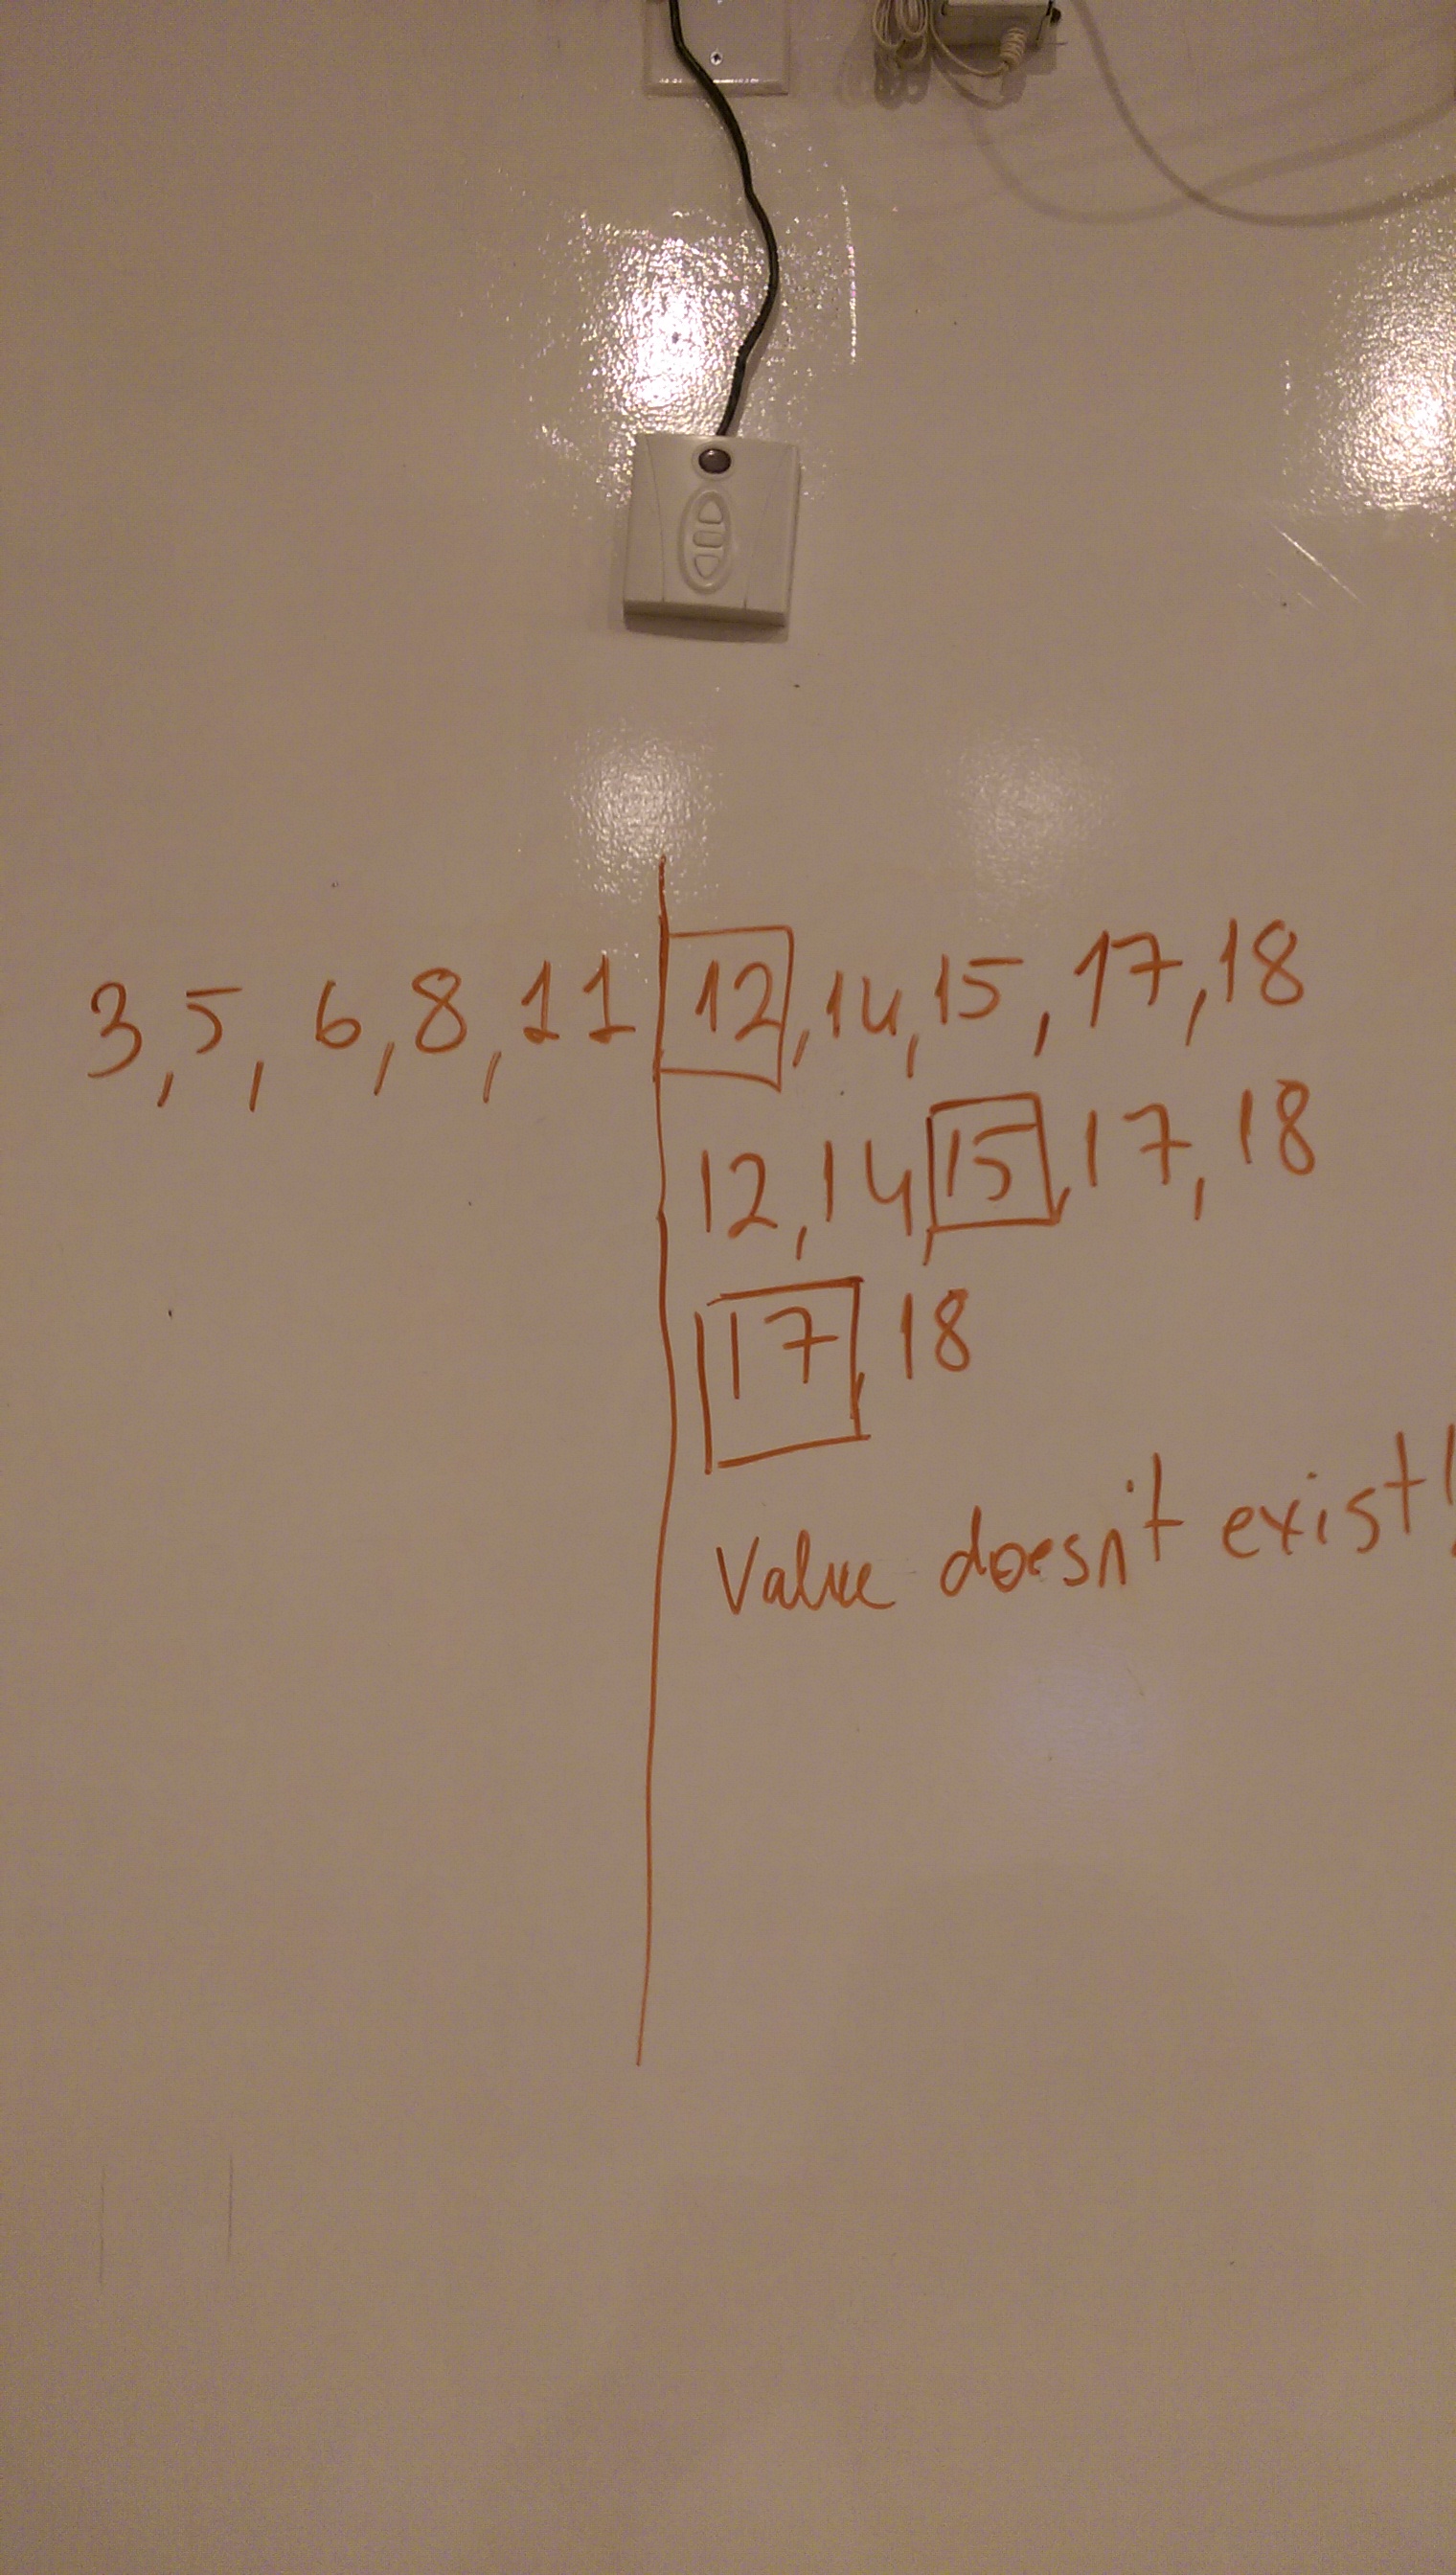 3, 5, 6, 8, 11 12, 14, 15, 17, 18
12, 14, 15, 17, 18
17, 18
Value doesn't exist!